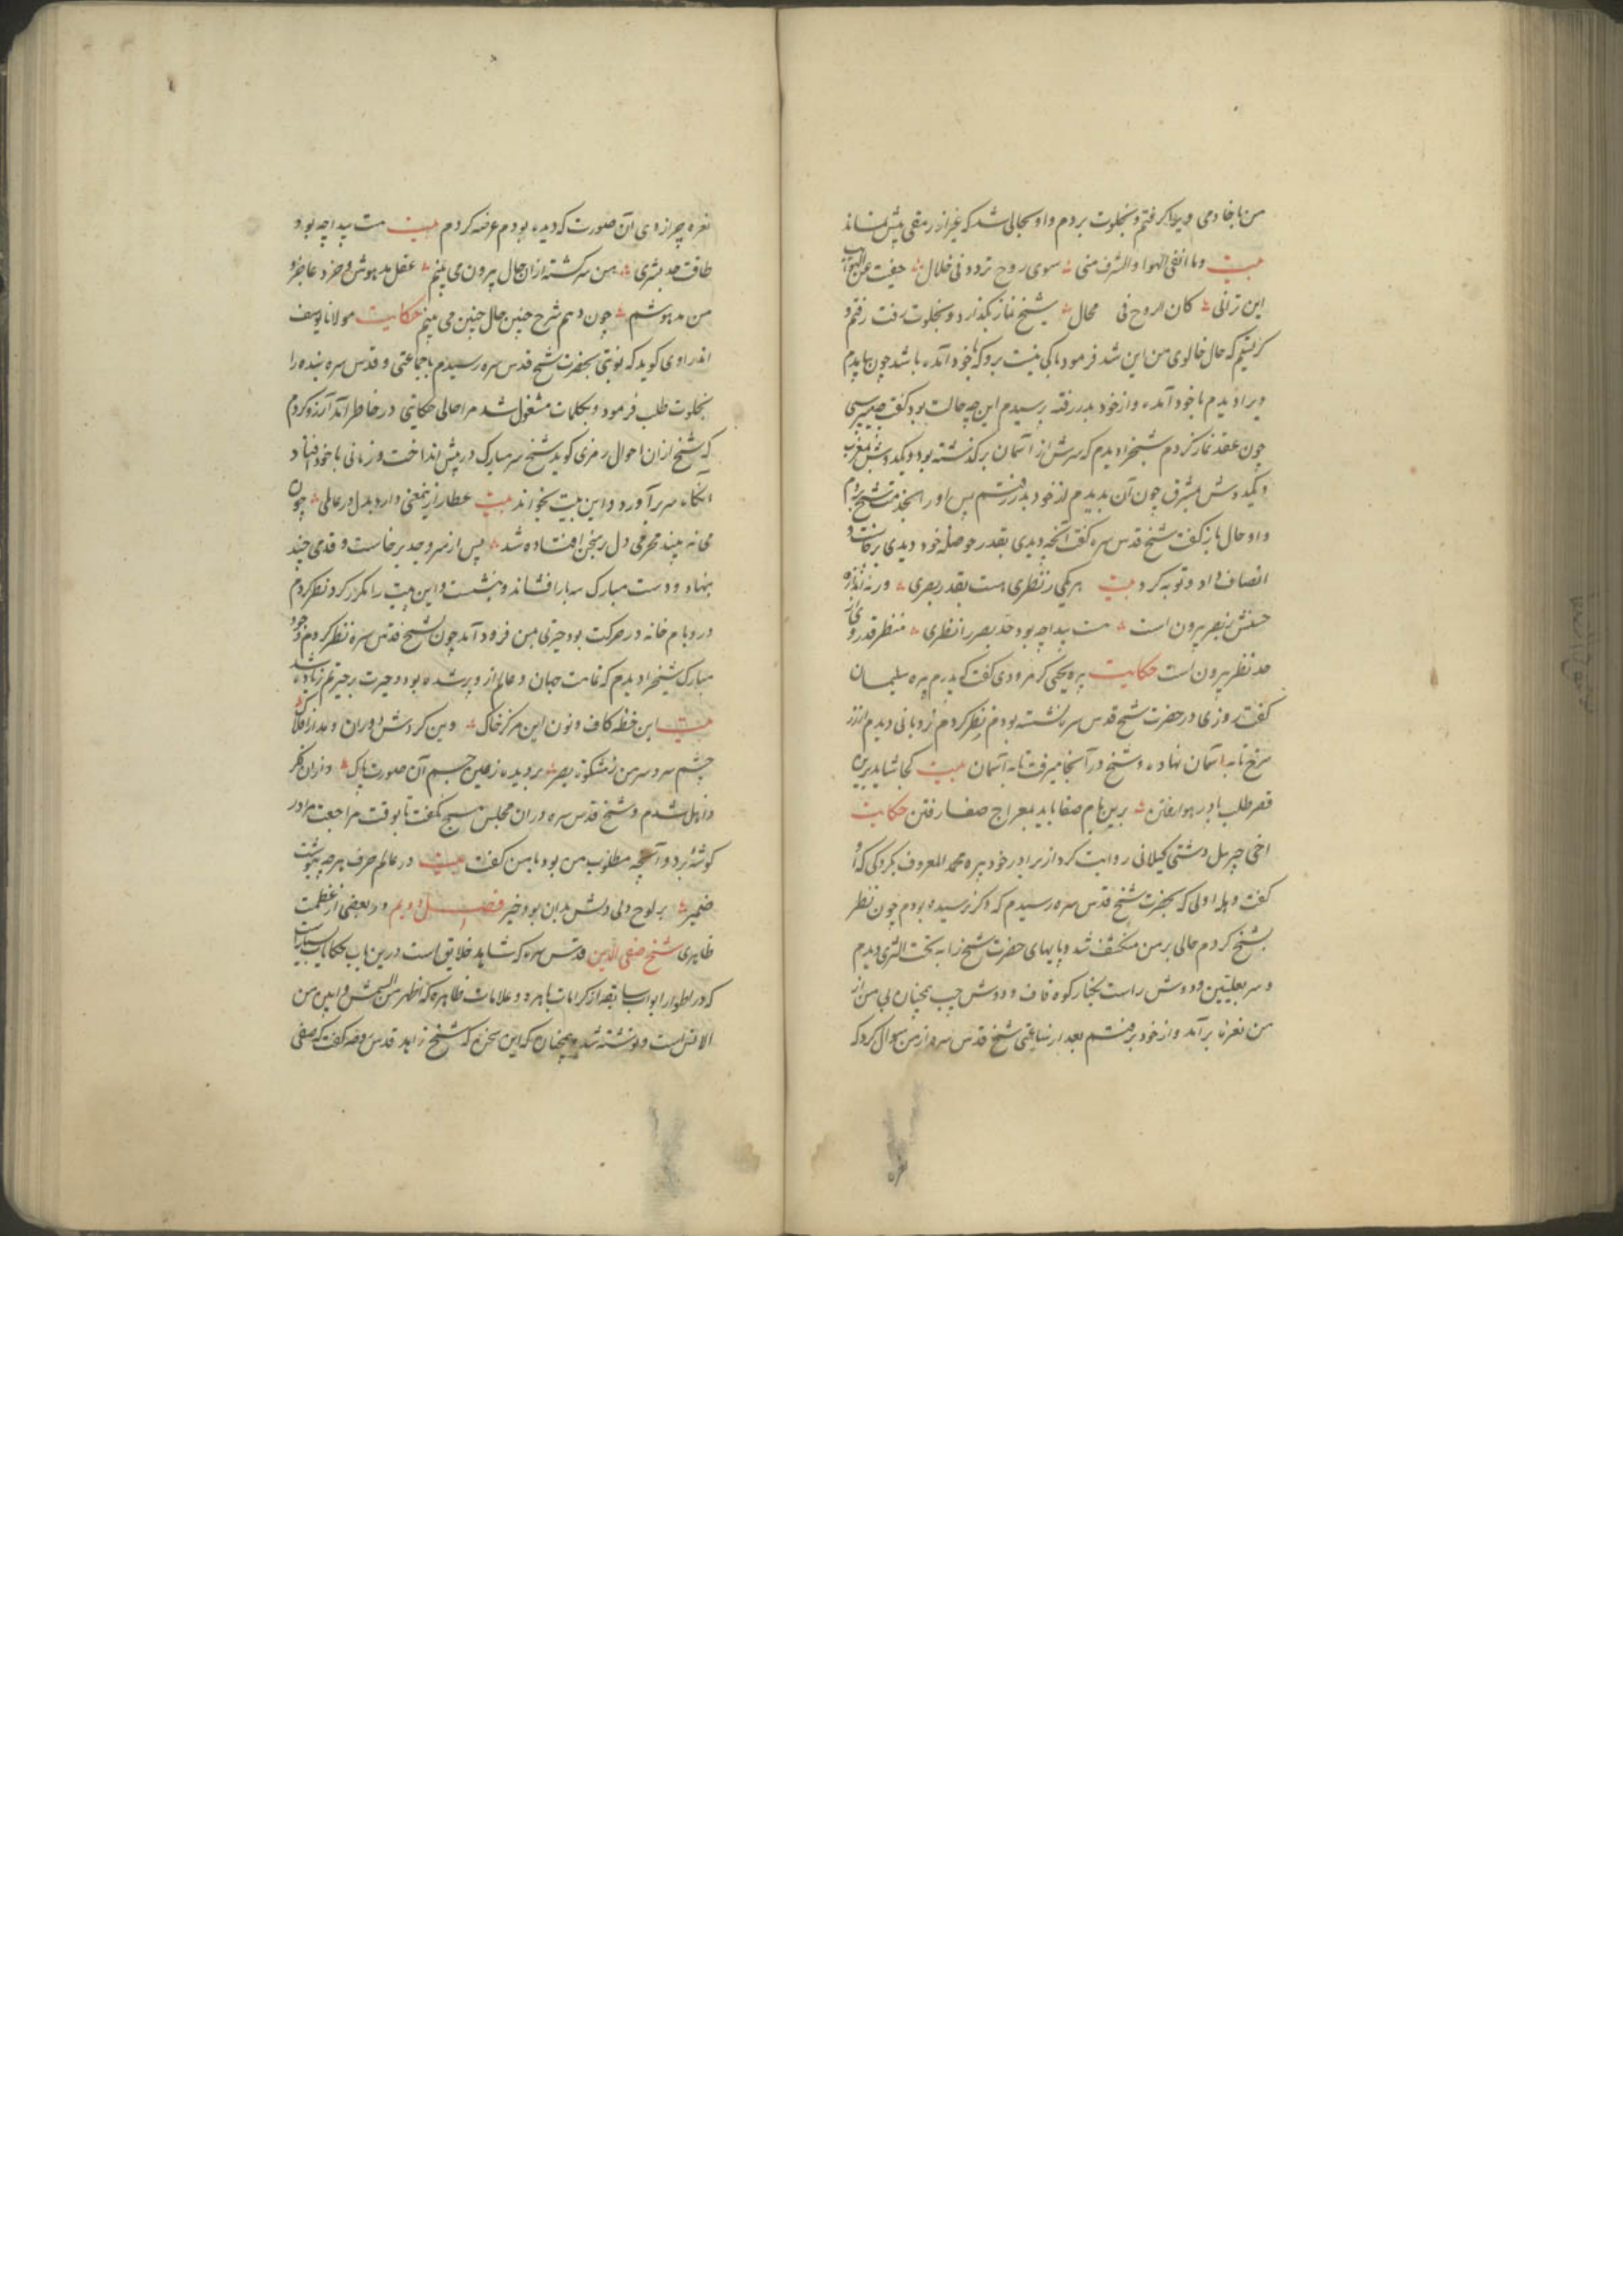 من با خادمی ویرا بر گرفتم و بخلوت بردم و او بحالی شد که غیر از رمقی پیش نماند
بیت وما انفی الهوا والشرف منی سوی روح تردد فی خلال خفیت عن
این ترانی کان الروح فی محال شیخ نماز بگذارد و بخلوت رفت رفتم و
که حال خالوی من این شد فرمود باکی نیست برو که با خود آمده باشد چون بیامدم
ویرا دیدم با خود آمده و از خود بدر رفته پرسیدم این چه حالت بود گفت چه میپرسی
چون عقد نماز کردم شیخ را دیدم که سرش از آسمان بر گذشته بود و یکدوش بمغرب
و یکدوش بمشرق چون آن بدیدم از خود بدر رفتم پس او را بخدمت شیخ بردم
و او حال باز گفت شیخ قدس سره گفت آنچه دیدی بقدر حوصله خود دیدی برخاست و
انصاف داد و توبه کرد بیت هر یکی را نظری هست بقدر بصری ورنه اندازه
حسنش ز بصر بیرون است هست پیدا چه بود حد بصر را نظری منظر قدر وی از
حد نظر بیرون است حکایت پیره یحیی کرمرودی گفت که پدرم پیره سلیمان
گفت روزی در حضرت شیخ قدس سره نشسته بودم نظر کردم نردبانی دیدم از زر
سرخ تا به آسمان نهاده و شیخ در آنجا میرفت تا به آسمان بیت کجا شاید برین
قصر طلب با در هوا رفتن برین بام صفا باید بمعراج صفا رفتن حکایت
اخی جبریل دشتی گیلانی روایت کرد از برادر خود پیره محمد المعروف بکردکی که او
گفت وهله اولی که بحضرت شیخ قدس سره رسیدم که دگر نرسیده بودم چون نظر
بشیخ کردم حالی بر من منکشف شد و پایهای حضرت شیخ را به تحت الثری دیدم
و سر بعلیین و دوش راست بکنار کوه قاف و دوش چپ همچنان از
من نعره برآمد و از خود برفتم بعد از ساعتی شیخ قدس سره از من سوال کرد که
نعره
نعره چرا زدی آن صورت که دیده بودم عرضه کردم بیت هست پیدا چه بود
طاقت حد بشری من سرگشته از آن حال بیرون می بینم عقل مدهوش و خرد عاجز و
من مدهوشم چون دهم شرح چنین حال چنین می بینم حکایت مولانا یوسف
راوی گوید که نوبتی بحضرت شیخ قدس سره رسیدم با جماعتی و قدس سره بنده را
بخلوت طلب فرمود و بکلمات مشغول شد مرا حالی حکایتی در خاطر آمد آرزو کردم
که شیخ از آن احوال رمزی گوید شیخ سر مبارک در پیش انداخت و زمانی با خود افتاد
آنگاه سر برآورد و این بیت بخواند بیت عطار ازین معنی دارد بدل در عالمی چون
می نه بیند محرمی دل بر سخن افتاده شد پس از سر وجد برخاست و قدمی چند
بنهاد و دست مبارک سه بار افشاند و بنشست و این بیت را مکرر کرد نظر کردم
در و بام خانه در حرکت بود حیرتی بمن فرود آمد چون بشیخ قدس سره نظر کردم وجود
مبارک شیخ را دیدم که تمامت جهان و عالم از و پر شده بود و حیرت بر حیرتم زیاده شد
بیت این خطه کاف و نون این مرکز خاک وین گردش دوران و مدار افلاک
چشم سر و سر من ز مشکوة بصر بر دیده ز عین جسم آن صورت پاک و از آن فکر
ذاهل شدم و شیخ قدس سره در آن مجلس هیچ نگفت تا بوقت مراجعت مرا در
گوشه برد و آنچه مطلوب من بود با من گفت بیت در عالم حرف هرچه بنوشت
ضمیر بر لوح دلی دلش بدان بود خبیر فصل دویم در بعضی از عظمت
ظاهری شیخ صفی الدین قدس سره که شاهد خلایق است درین باب حکایات بسیار است
که در اطوار ابواب سابقه از کرامات باهره و علامات ظاهره که اظهر من الشمس و ابین من
الامس است و نوشته شد و همچنان که این سخن که شیخ زاهد قدس روحه گفت که صفی